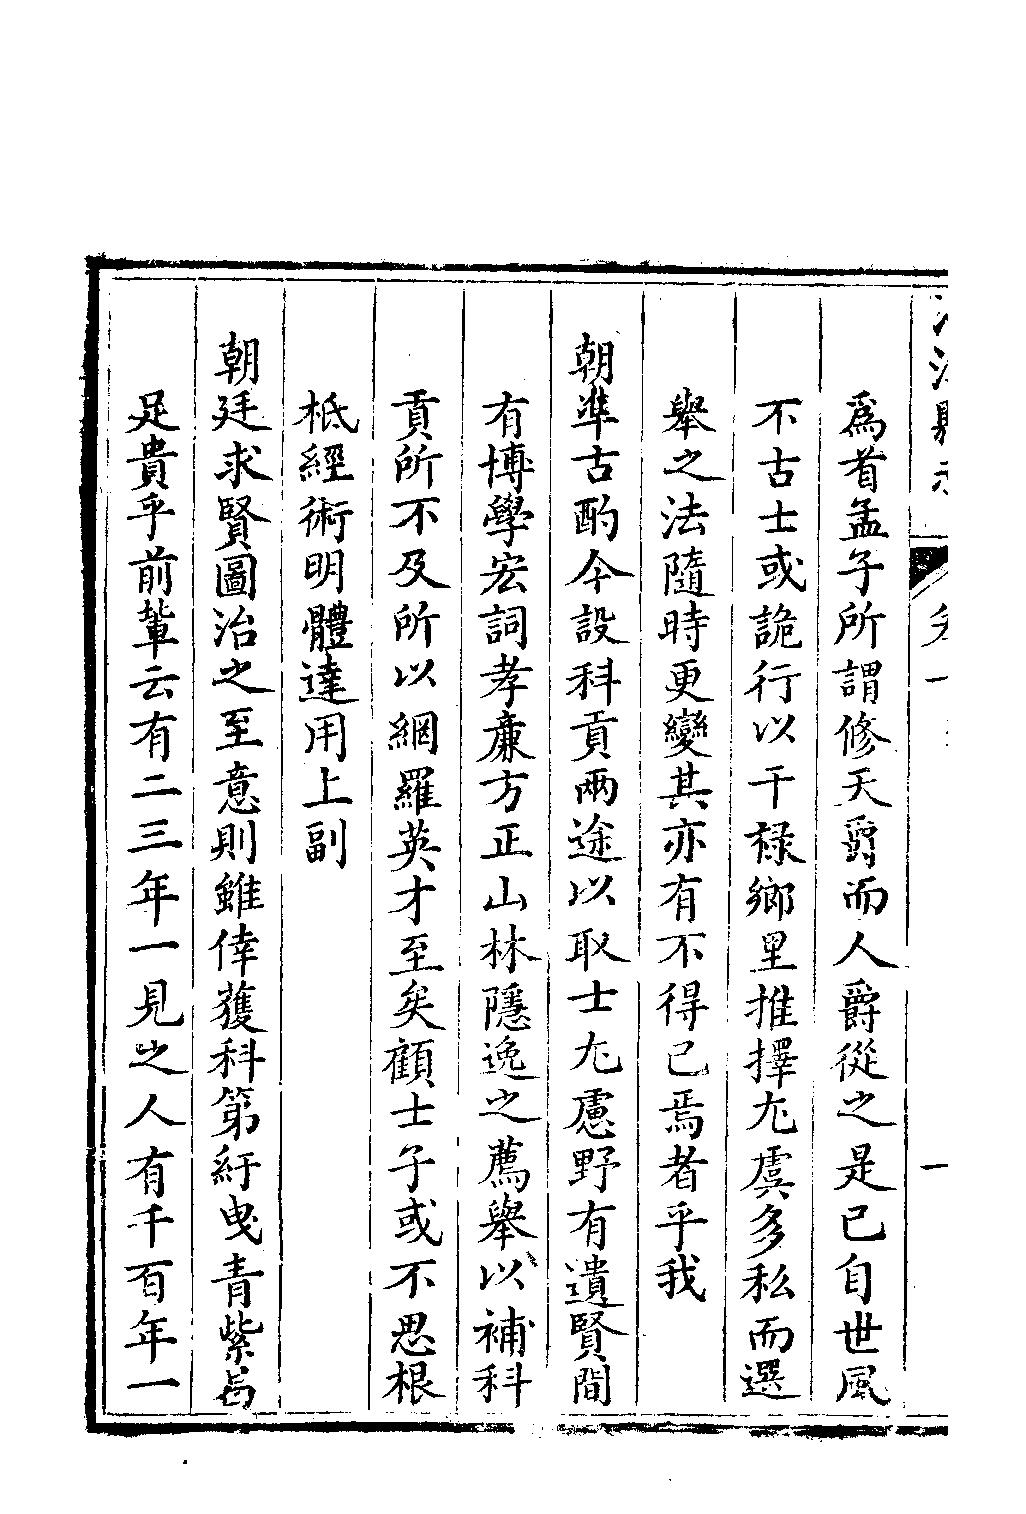 卷一 一
爲首孟子所謂修天爵而人爵從之是已自世風
不古士或詭行以干祿鄉里推擇尤虞多私而選
舉之法隨時更變其亦有不得已焉者乎我
朝準古酌今設科貢兩途以取士尤慮野有遺賢間
有博學宏詞孝廉方正山林隱逸之薦舉以補科
貢所不及所以網羅英才至矣顧士子或不思根
柢經術明體達用上副
朝廷求賢圖治之至意則雖倖獲科第紆曳青紫曷
足貴乎前輩云有二三年一見之人有千百年一